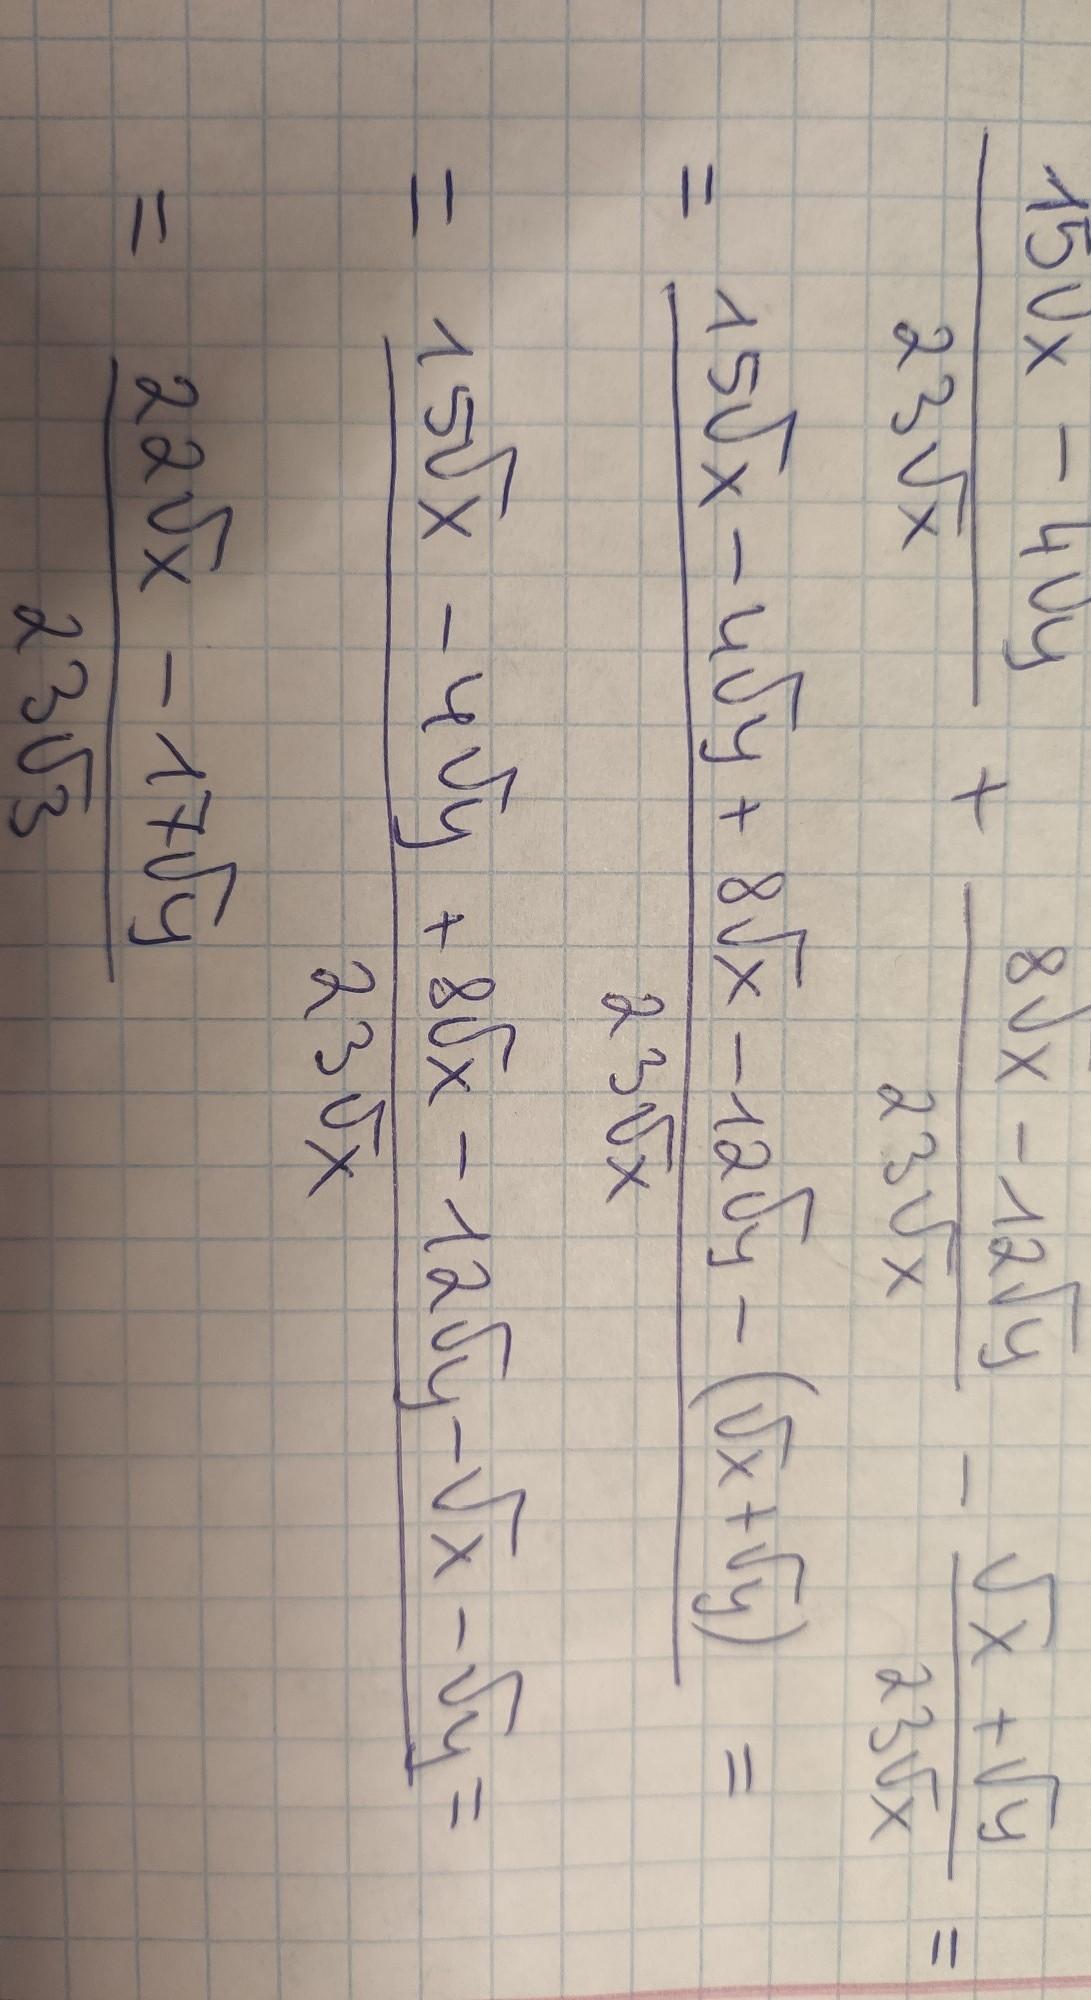 (15√x - 4√y)/(23√x) + (8√x - 12√y)/(23√x) - (√x + √y)/(23√x) =
= (15√x - 4√y + 8√x - 12√y - (√x + √y))/(23√x) =
= (15√x - 4√y + 8√x - 12√y - √x - √y)/(23√x) =
= (22√x - 17√y)/(23√3)